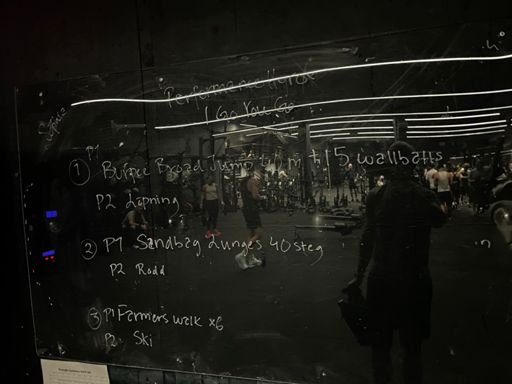 Performance Hyrox
I Go You Go
① P1 Burpee Broad Jump 40m + 15 wallballs
P2 Löpning
② P1 Sandbag Lunges 40 steg
P2 Rodd
③ P1 Farmers walk x6
P2 Ski